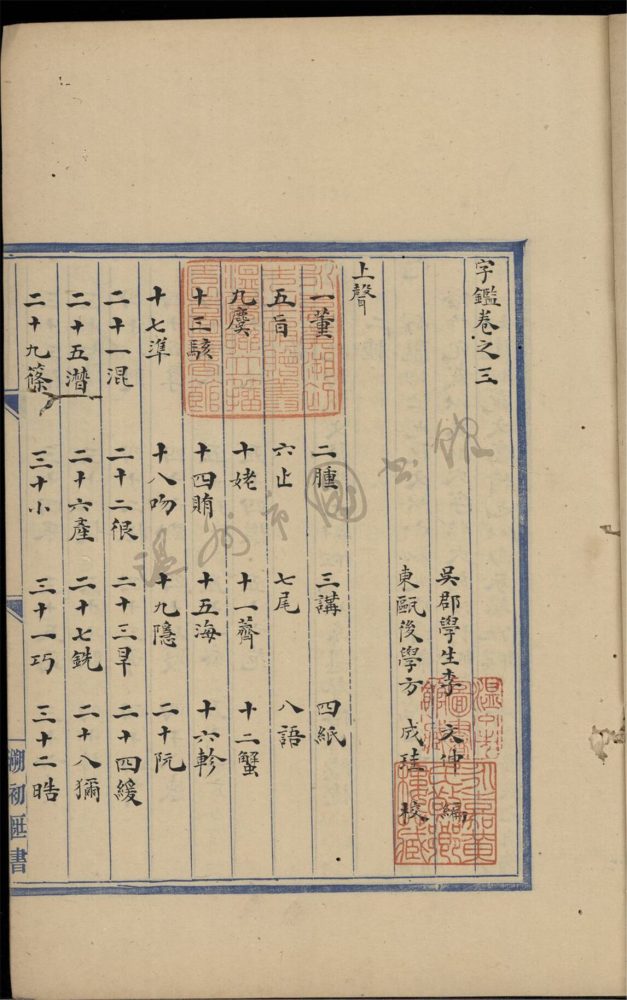 字鑑卷之三
吳郡學生李 文仲 編
東甌後學方 成珪 校
上聲
一董 二腫 三講 四紙
五旨 六止 七尾 八語
九麌 十姥 十一薺 十二蟹
十三駭 十四賄 十五海 十六軫
十七準 十八吻 十九隱 二十阮
二十一混 二十二很 二十三旱 二十四緩
二十五潸 二十六產 二十七銑 二十八獮
二十九篠 三十小 三十一巧 三十二晧
朔初匧書
溫州市圖書館